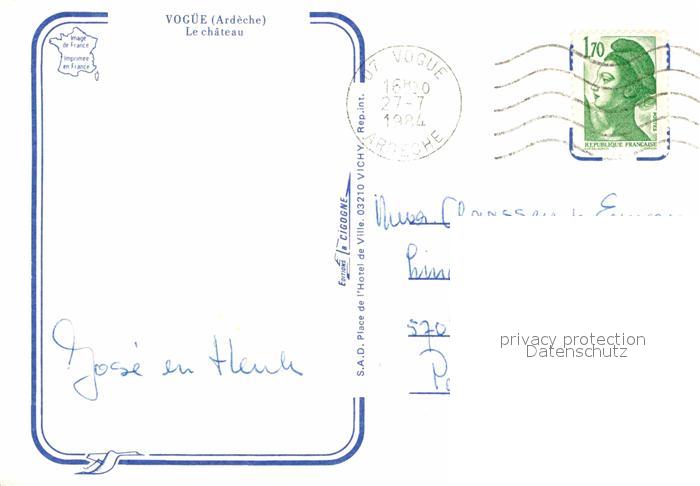 VOGÜE (Ardèche)
Le château
Image
de France
Imprimée
en France
07 VOGUE
16H10
27-7
1984
ARDECHE
1,70
POSTES
REPUBLIQUE FRANÇAISE
EDITIONS la CIGOGNE
S.A.D. Place de l'Hotel de Ville. 03210 VICHY. Rep.int.
570
José en Henk
privacy protection
Datenschutz